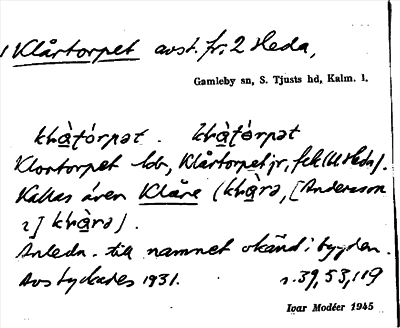 Klårtorpet avst. fr. 2 Heda,
Gamleby sn, S. Tjusts hd, Kalm. l.
Klortorpet ldr, Klårtorpet jr, fek (U Heda).
Kallas även Klåre [Andersson
Anledn. till namnet okänd i bygden.
Avstyckades 1931. s. 39, 53, 119
Ivar Modéer 1945